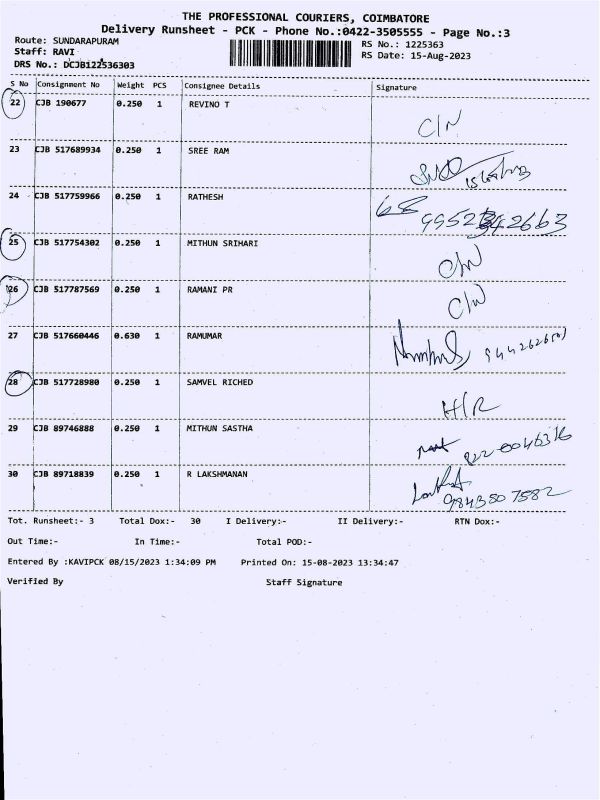 THE PROFESSIONAL COURIERS, COIMBATORE
Delivery Runsheet - PCK - Phone No.:0422-3505555 - Page No.:3
Route: SUNDARAPURAM
RS No.: 1225363
Staff: RAVI
RS Date: 15-Aug-2023
DRS No.: DCJB122536303
S No Consignment No Weight PCS Consignee Details Signature
22 CJB 190677 0.250 1 REVINO T
C/N
23 CJB 517689934 0.250 1 SREE RAM
24 CJB 517759966 0.250 1 RATHESH
25 CJB 517754302 0.250 1 MITHUN SRIHARI
C/N
26 CJB 517787569 0.250 1 RAMANI PR
C/N
27 CJB 517660446 0.630 1 RAMUMAR
28 CJB 517728980 0.250 1 SAMVEL RICHED
H/R
29 CJB 89746888 0.250 1 MITHUN SASTHA
30 CJB 89718839 0.250 1 R LAKSHMANAN
9843507582
Tot. Runsheet:- 3 Total Dox:- 30 I Delivery:- II Delivery:- RTN Dox:-
Out Time:- In Time:- Total POD:-
Entered By :KAVIPCK 08/15/2023 1:34:09 PM Printed On: 15-08-2023 13:34:47
Verified By Staff Signature